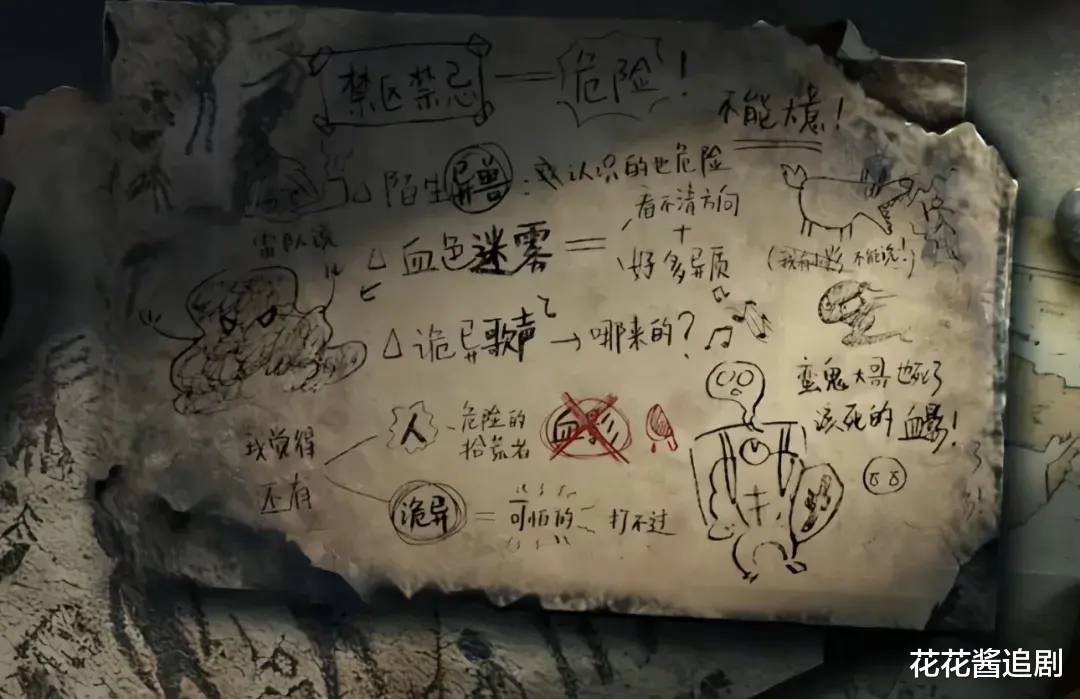 禁区禁忌 == 危险!
不能大意!
△ 陌生异兽: 认识的也危险
雷队说
△ 血色迷雾 =
看不清方向
+
好多异质
不能说!)
△ 诡异歌声 → 哪来的?
蛮鬼大哥也死了
该死的血影!
我觉得
还有
人 - 危险的
拾荒者
血影
诡异 = 可怕的 打不过
花花酱追剧